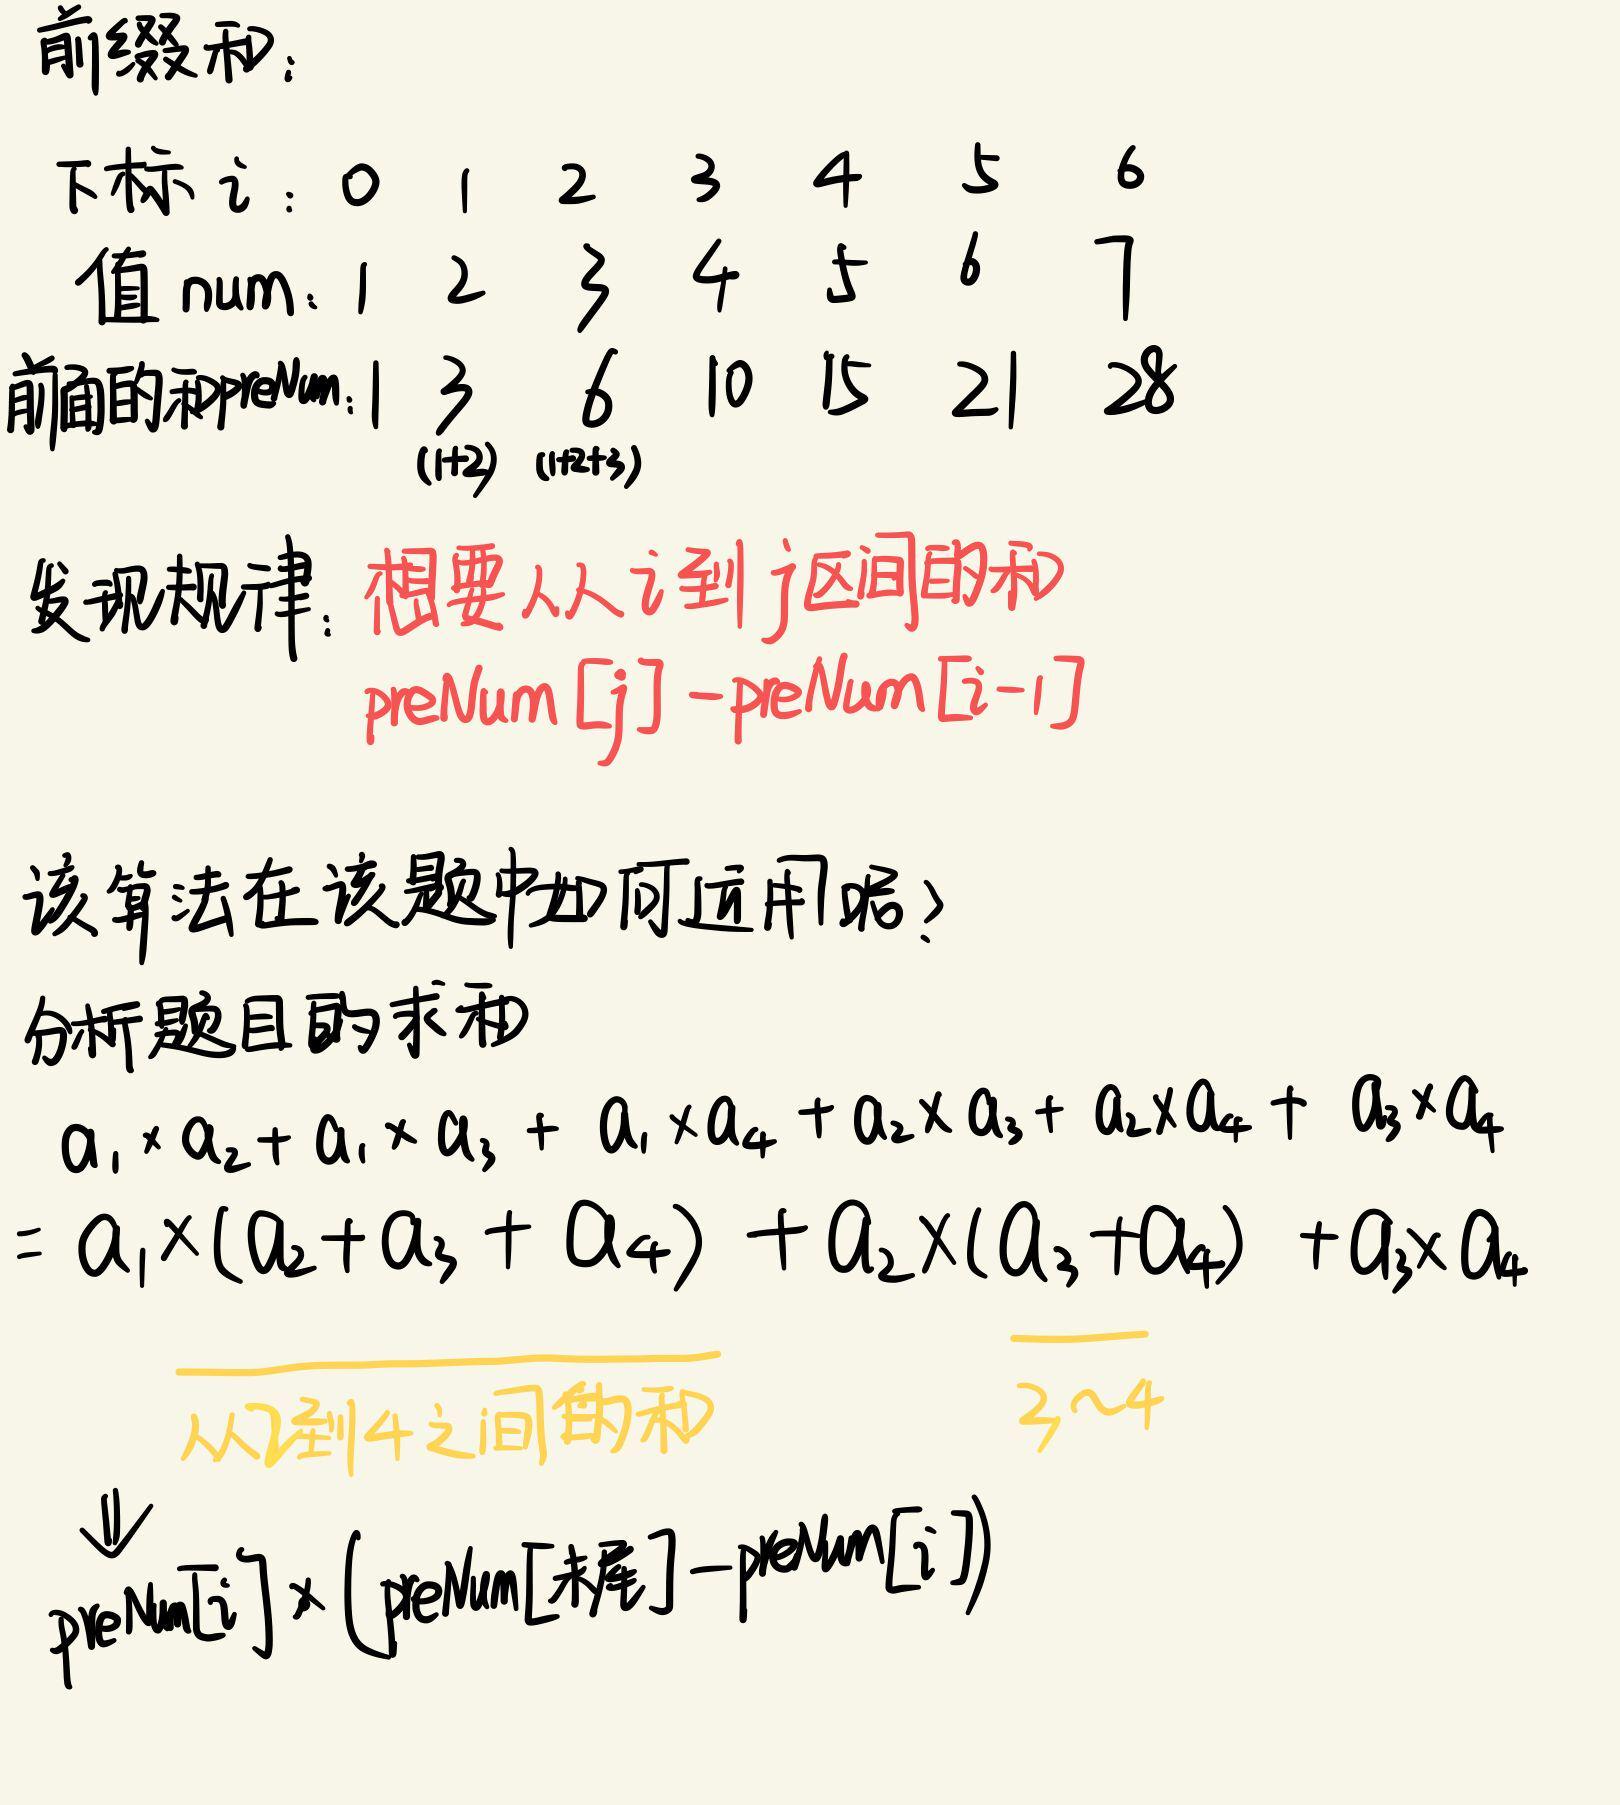 前缀和:
下标 i: 0 1 2 3 4 5 6
值 num: 1 2 3 4 5 6 7
前面的和preNum: 1 3 6 10 15 21 28
(1+2) (1+2+3)
发现规律: 想要从从i到j区间的和
preNum[j]-preNum[i-1]
该算法在该题中如何运用呢?
分析题目的求和
a₁×a₂+a₁×a₃+a₁×a₄+a₂×a₃+a₂×a₄+a₃×a₄
=a₁×(a₂+a₃+a₄)+a₂×(a₃+a₄)+a₃×a₄
从2到4之间的和 3~4
⇓
preNum[i]×(preNum[末尾]-preNum[i])